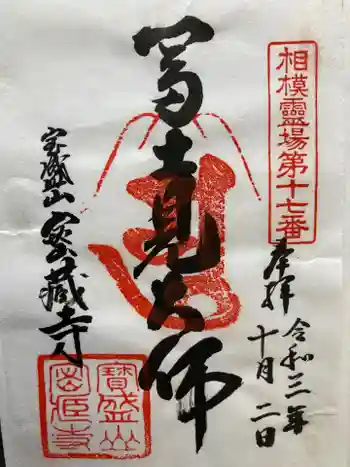 相模靈場第十七番
奉拝
令和三年
十月二日
富士見大師
宝盛山
密蔵寺
寳盛山
密蔵寺